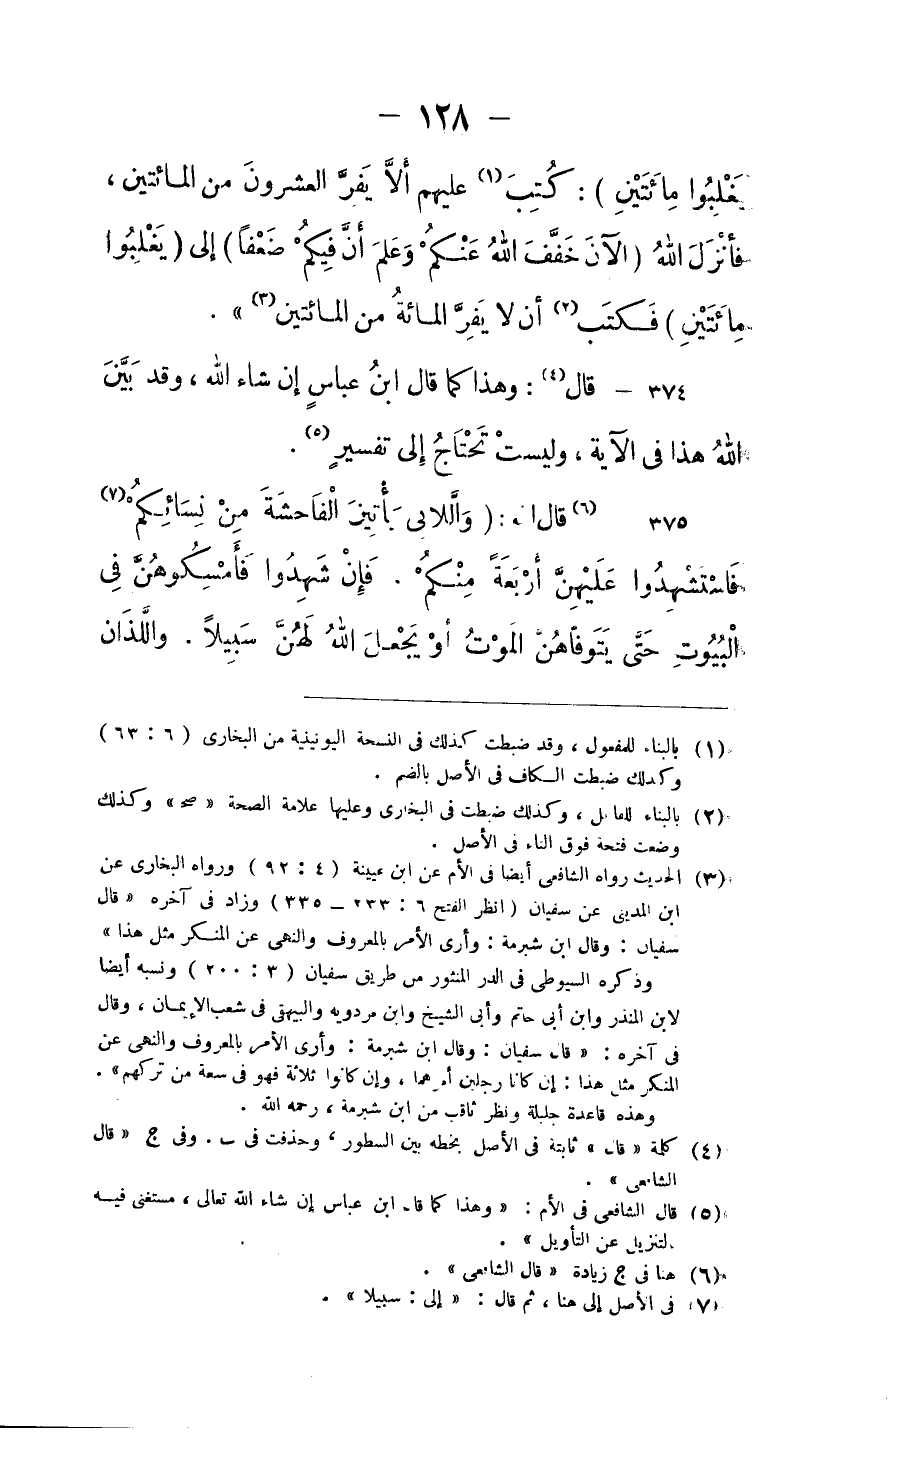 — ١٢٨ —
يَغْلِبُوا مِائَتَيْنِ ) : كُتِبَ (١) عليهم ألاَّ يَفِرَّ العشرونَ من المائتين ،
فأنْزَلَ اللهُ ( الآنَ خَفَّفَ اللهُ عَنْكُمْ وَعَلِمَ أنَّ فِيكُمْ ضَعْفاً ) إلى ( يَغْلِبُوا
مِائَتَيْنِ ) فَكتَب (٢) أن لا يَفِرَّ المائةُ من المائتين (٣) » .
٣٧٤ — قال (٤) : وهذا كما قال ابنُ عباسٍ إن شاء الله ، وقد بَيَّنَ
اللهُ هذا فى الآية ، وليستْ تَحْتَاجُ إلى تفسيرٍ (٥) .
٣٧٥ (٦) قال الله : ( وَالَّلاتِى يَأْتِينَ الْفَاحِشَةَ مِنْ نِسَائِكُمْ (٧)
فَاسْتَشْهِدُوا عَلَيْهِنَّ أَرْبَعَةً مِنْكُمْ . فَإِنْ شَهِدُوا فَأَمْسِكُوهُنَّ فِى
الْبُيُوتِ حَتَّى يَتَوفَّاهُنَّ المَوْتُ أوْ يَجْعَلَ اللهُ لَهُنَّ سَبِيلاً . واللَّذَانِ
(١) بالبناء للمفعول ، وقد ضبطت كذلك فى النسخة اليونينية من البخارى ( ٦ : ٦٣ )
وكذلك ضبطت الكاف فى الأصل بالضم .
(٢) بالبناء للفاعل ، وكذلك ضبطت فى البخارى وعليها علامة الصحة « صح » وكذلك
وضعت فتحة فوق التاء فى الأصل .
(٣) الحديث رواه الشافعى أيضا فى الأم عن ابن عيينة ( ٤ : ٩٢ ) ورواه البخارى عن
ابن المدينى عن سفيان ( انظر الفتح ٦ : ٢٣٣ — ٣٣٥ ) وزاد فى آخره « قال
سفيان : وقال ابن شبرمة : وأرى الأمر بالمعروف والنهى عن المنكر مثل هذا »
وذكره السيوطى فى الدر المنثور من طريق سفيان ( ٣ : ٢٠٠ ) ونسبه أيضا
لابن المنذر وابن أبى حاتم وأبى الشيخ وابن مردويه والبيهقى فى شعب الإيمان ، وقال
فى آخره : « قال سفيان : وقال ابن شبرمة : وأرى الأمر بالمعروف والنهى عن
المنكر مثل هذا : إن كانا رجلين أمرهما ، وإن كانوا ثلاثة فهو فى سعة من تركهم » .
وهذه قاعدة جليلة ونظر ثاقب من ابن شبرمة ، رحمه الله .
(٤) كلمة « قال » ثابتة فى الأصل بخطه بين السطور ، وحذفت فى ب . وفى ج « قال
الشافعى » .
(٥) قال الشافعى فى الأم : « وهذا كما قال ابن عباس إن شاء الله تعالى ، مستغنى فيه
بالتنزيل عن التأويل » .
(٦) هنا فى ج زيادة « قال الشافعى » .
(٧) فى الأصل إلى هنا ، ثم قال : « إلى : سبيلا » .